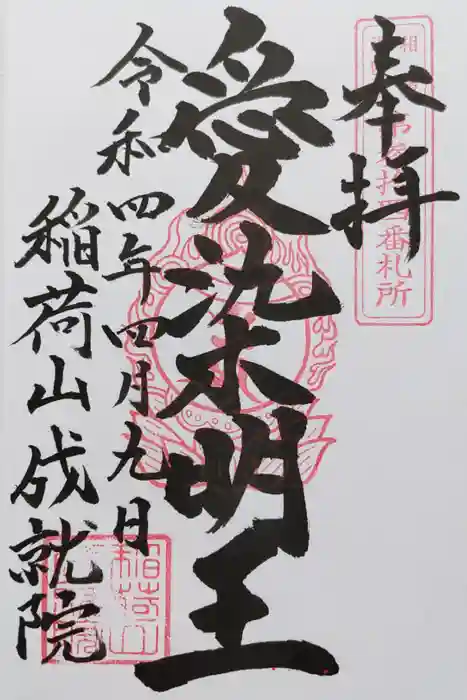 奉拝
愛染明王
令和四年四月九日
稲荷山成就院
番札所
稲荷山